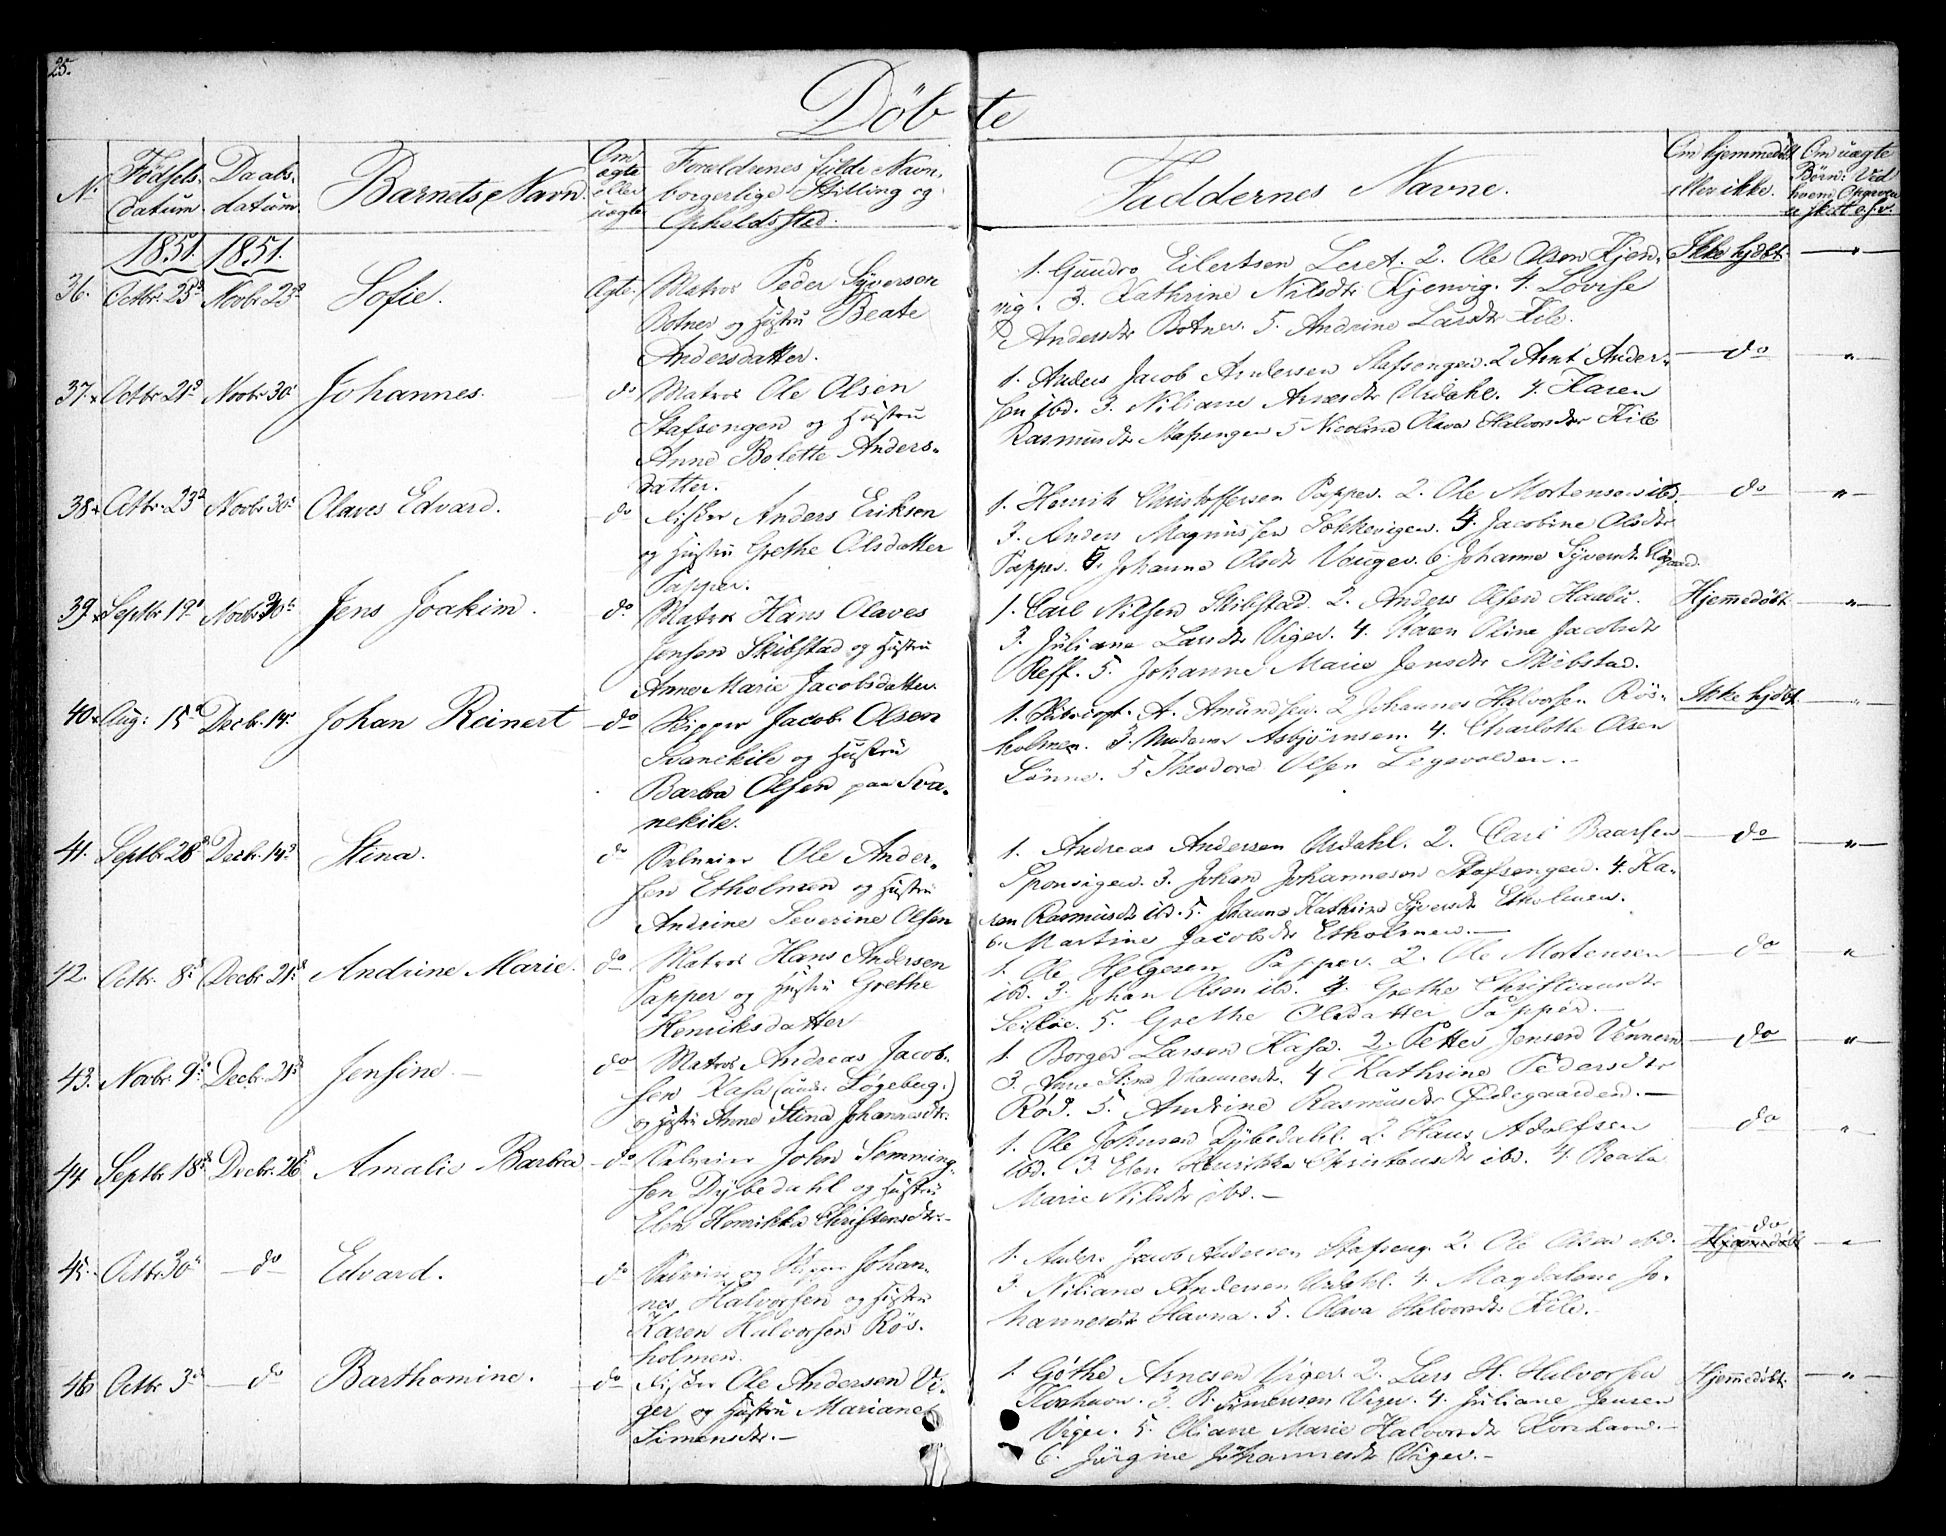 25.
Döbte
No
Födsels-
datum.
Daabs-
datum.
Barnets Navn.
Om
ægte
eller
uægte
Foreldrenes fulde Navn,
borgerlige Stilling og
Opholdssted.
Faddernes Navne.
Om hjemmedöbt
eller ikke.
Om uægte
Börn: Ved
hvem Opgaven
er skett o.s.v.
1851. 1851.
36. Octbr. 25de Novbr. 23de Sofie. Ægte. Matros Peder Syversen
Botner og Hustru Beate
Andersdatter.
1. Gundro Eilertsen Leret. 2. Ole Olsen Kjen-
vig. 3. Kathrine Nilsdtr Kjenvig. 4. Lovise
Andersdtr Botner. 5. Andrine Larsdtr Kile.
Ikke hjdbt. —"—
37. Octbr. 21de Novbr. 30. Johannes. do Matros Ole Olsen
Stafsengen og Hustru
Anne Bolette Anders-
datter.
1. Anders Jacob Andersen Stafsengen. 2 Arnt Ander-
sen ibd. 3. Niliane Arnesdtr Urdahl. 4. Karen
Rasmusdtr Stafsengen 5 Nicoline Olava Halvorsdtr Kile
do "
38. Octbr. 23de Novbr. 30. Olaves Edvard. do Fisker Anders Eriksen
og Hustru Grethe Olsdatter
Papper.
1. Henrik Christoffersen Papper. 2. Ole Mortensen ibd.
3. Anders Magnussen Sokkevigen. 4. Jacobine Olsdtr
Papper. 5. Johanne Olsdtr Vauger. 6. Johanne Syversdt.
do —"—
39. Septbr. 19de Novbr. 30. Jens Joakim. do Matros Hans Olaves
Jensen Skibstad og Hustru
Anne Marie Jacobsdatter.
1. Carl Nilsen Skibstad. 2. Anders Olsen Hasbu.
3. Juliane Larsdtr Viger. 4. Karen Oline Jacobsdtr
Reff. 5. Johanne Marie Jensdtr Skibstad.
Hjemmedöbt —"—
40. Aug: 15de Decbr. 14. Johan Reinert do Skipper Jacob Olsen
Svanekile og Hustru
Barbra Olsen paa Sva-
nekile.
A. Amundsen. 2 Johannes Halvorsen Rös-
holmen. 3. Madame Asbjörnsen. 4. Charlotte Olsen
Lönne. 5 Theodora Olsen Lögevolden.—
Ikke hjdbt
41. Septbr. 28de Decbr. 14de Stina. do Selveier Ole Ander-
sen Etholmen og Hustru
Andrine Severine Olsen
1. Andreas Andersen Urdahl. 2. Carl Baarsen
Sponvigen. 3. Johan Johannesen Stafsengen. 4. Ka-
ren Rasmusdtr ibd. 5. Johanne Kathrine Syversdtr Etholmen.
6. Martine Jacobsdtr Etholmen.—
do —"—
42. Octbr. 8de Decbr. 21de Andrine Marie. do Matros Hans Andersen
Papper og Hustru Grethe
Henriksdatter
1. Ole Helgesen Papper. 2. Ole Mortensen
ibd. 3. Johan Olsen ibd. 4. Grethe Christiansdtr
5. Grethe Olsdatter Papper.—
do "
43. Novbr. 9de Decbr. 21de Jensine.— do Matros Andreas Jacob-
sen Kasa (under Lögeberg.)
og Hustru Anne Stina Johannesdtr.
1. Borger Larsen Kasa. 2. Petter Jensen Vennern
3. Anne Stine Hansdtr. 4 Kathrine Pedersdtr
Röd. 5. Andrine Rasmusdtr Ödegaarden.—
do "
44. Septbr. 18de Decbr. 26de Amalie Barbra do Selveier John Semming-
sen Dybedahl og Hustru
Elen Henrikka Christensdtr.—
1. Ole Johnsen Dybedahl. 2. Hans Adolfsen
ibd. 3. Elen Henrikka Christensdtr ibd. 4. Beata
Marie Nilsdtr ibd.—
do "
45. Octbr. 30de do Edvard. do Selveier og Skipper Johan-
nes Halvorsen og Hustru
Karen Halvorsen Rös-
holmen.
1. Anders Jacob Andersen Stafseng. 2. Ole Olsen ibd.
3. Niliane Andersen Urdahl. 4. Magdalene Jo-
hannesdtr Havna. 5. Olava Halvorsdtr Kile.—
do
Hjemmedöbt "
46 Octbr. 3de do Barthomine. do Fisker Ole Andersen Vi-
ger og Hustru Mariane
Simensdtr.—
1. Göthe Arnesen Viger. 2. Lars H. Halvorsen
Korshavn. 3 B. Simensen Viger. 4. Juliane Jensen
Viger. 5. Oliane Marie Halvorsdtr Korshavn.—
6. Jörgine Johannesdtr Viger.—
Hjemmedöbt. —"—